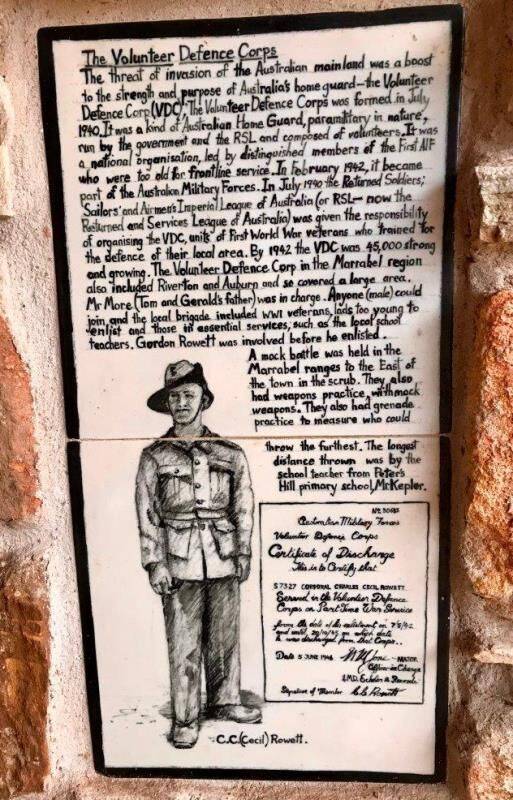 The Volunteer Defence Corps
The threat of invasion of the Australian mainland was a boost
to the strength and purpose of Australia's home guard—the Volunteer
Defence Corp (VDC). The Volunteer Defence Corps was formed in July
1940. It was a kind of Australian Home Guard, paramilitary in nature,
run by the government and the RSL and composed of volunteers. It was
a national organisation, led by distinguished members of the First AIF
who were too old for frontline service. In February 1942, it became
part of the Australian Military Forces. In July 1940 the Returned Soldiers,
Sailors' and Airmen's Imperial League of Australia (or RSL— now the
Returned and Services League of Australia) was given the responsibility
of organising the VDC, units of First World War veterans who trained for
the defence of their local area. By 1942 the VDC was 45,000 strong
and growing. The Volunteer Defence Corp in the Marrabel region
also included Riverton and Auburn and so covered a large area.
Mr More (Tom and Gerald's father) was in charge. Anyone (male) could
join and the local brigade included WWI veterans, lads too young to
enlist and those in essential services, such as the local school
teachers. Gordon Rowett was involved before he enlisted.
A mock battle was held in the
Marrabel ranges to the East of
the town in the scrub. They also
had weapons practice, with mock
weapons. They also had grenade
practice to measure who could
throw the furthest. The longest
distance thrown was by the
school teacher from Peter's
Hill primary school, Mr Kepler.
Australian Military Forces
Volunteer Defence Corps
Certificate of Discharge
This is to Certify that
S7327 CORPORAL CHARLES CECIL ROWETT
Served in the Volunteer Defence
Corps on Part Time War Service
from the date of his enlistment on
and until on which date
he was discharged from that Corps.
Date 5 JUNE 1946 MAJOR
Officer in Charge
Echelon & Records
Signature of Member C.C. Rowett
C.C. (Cecil) Rowett.